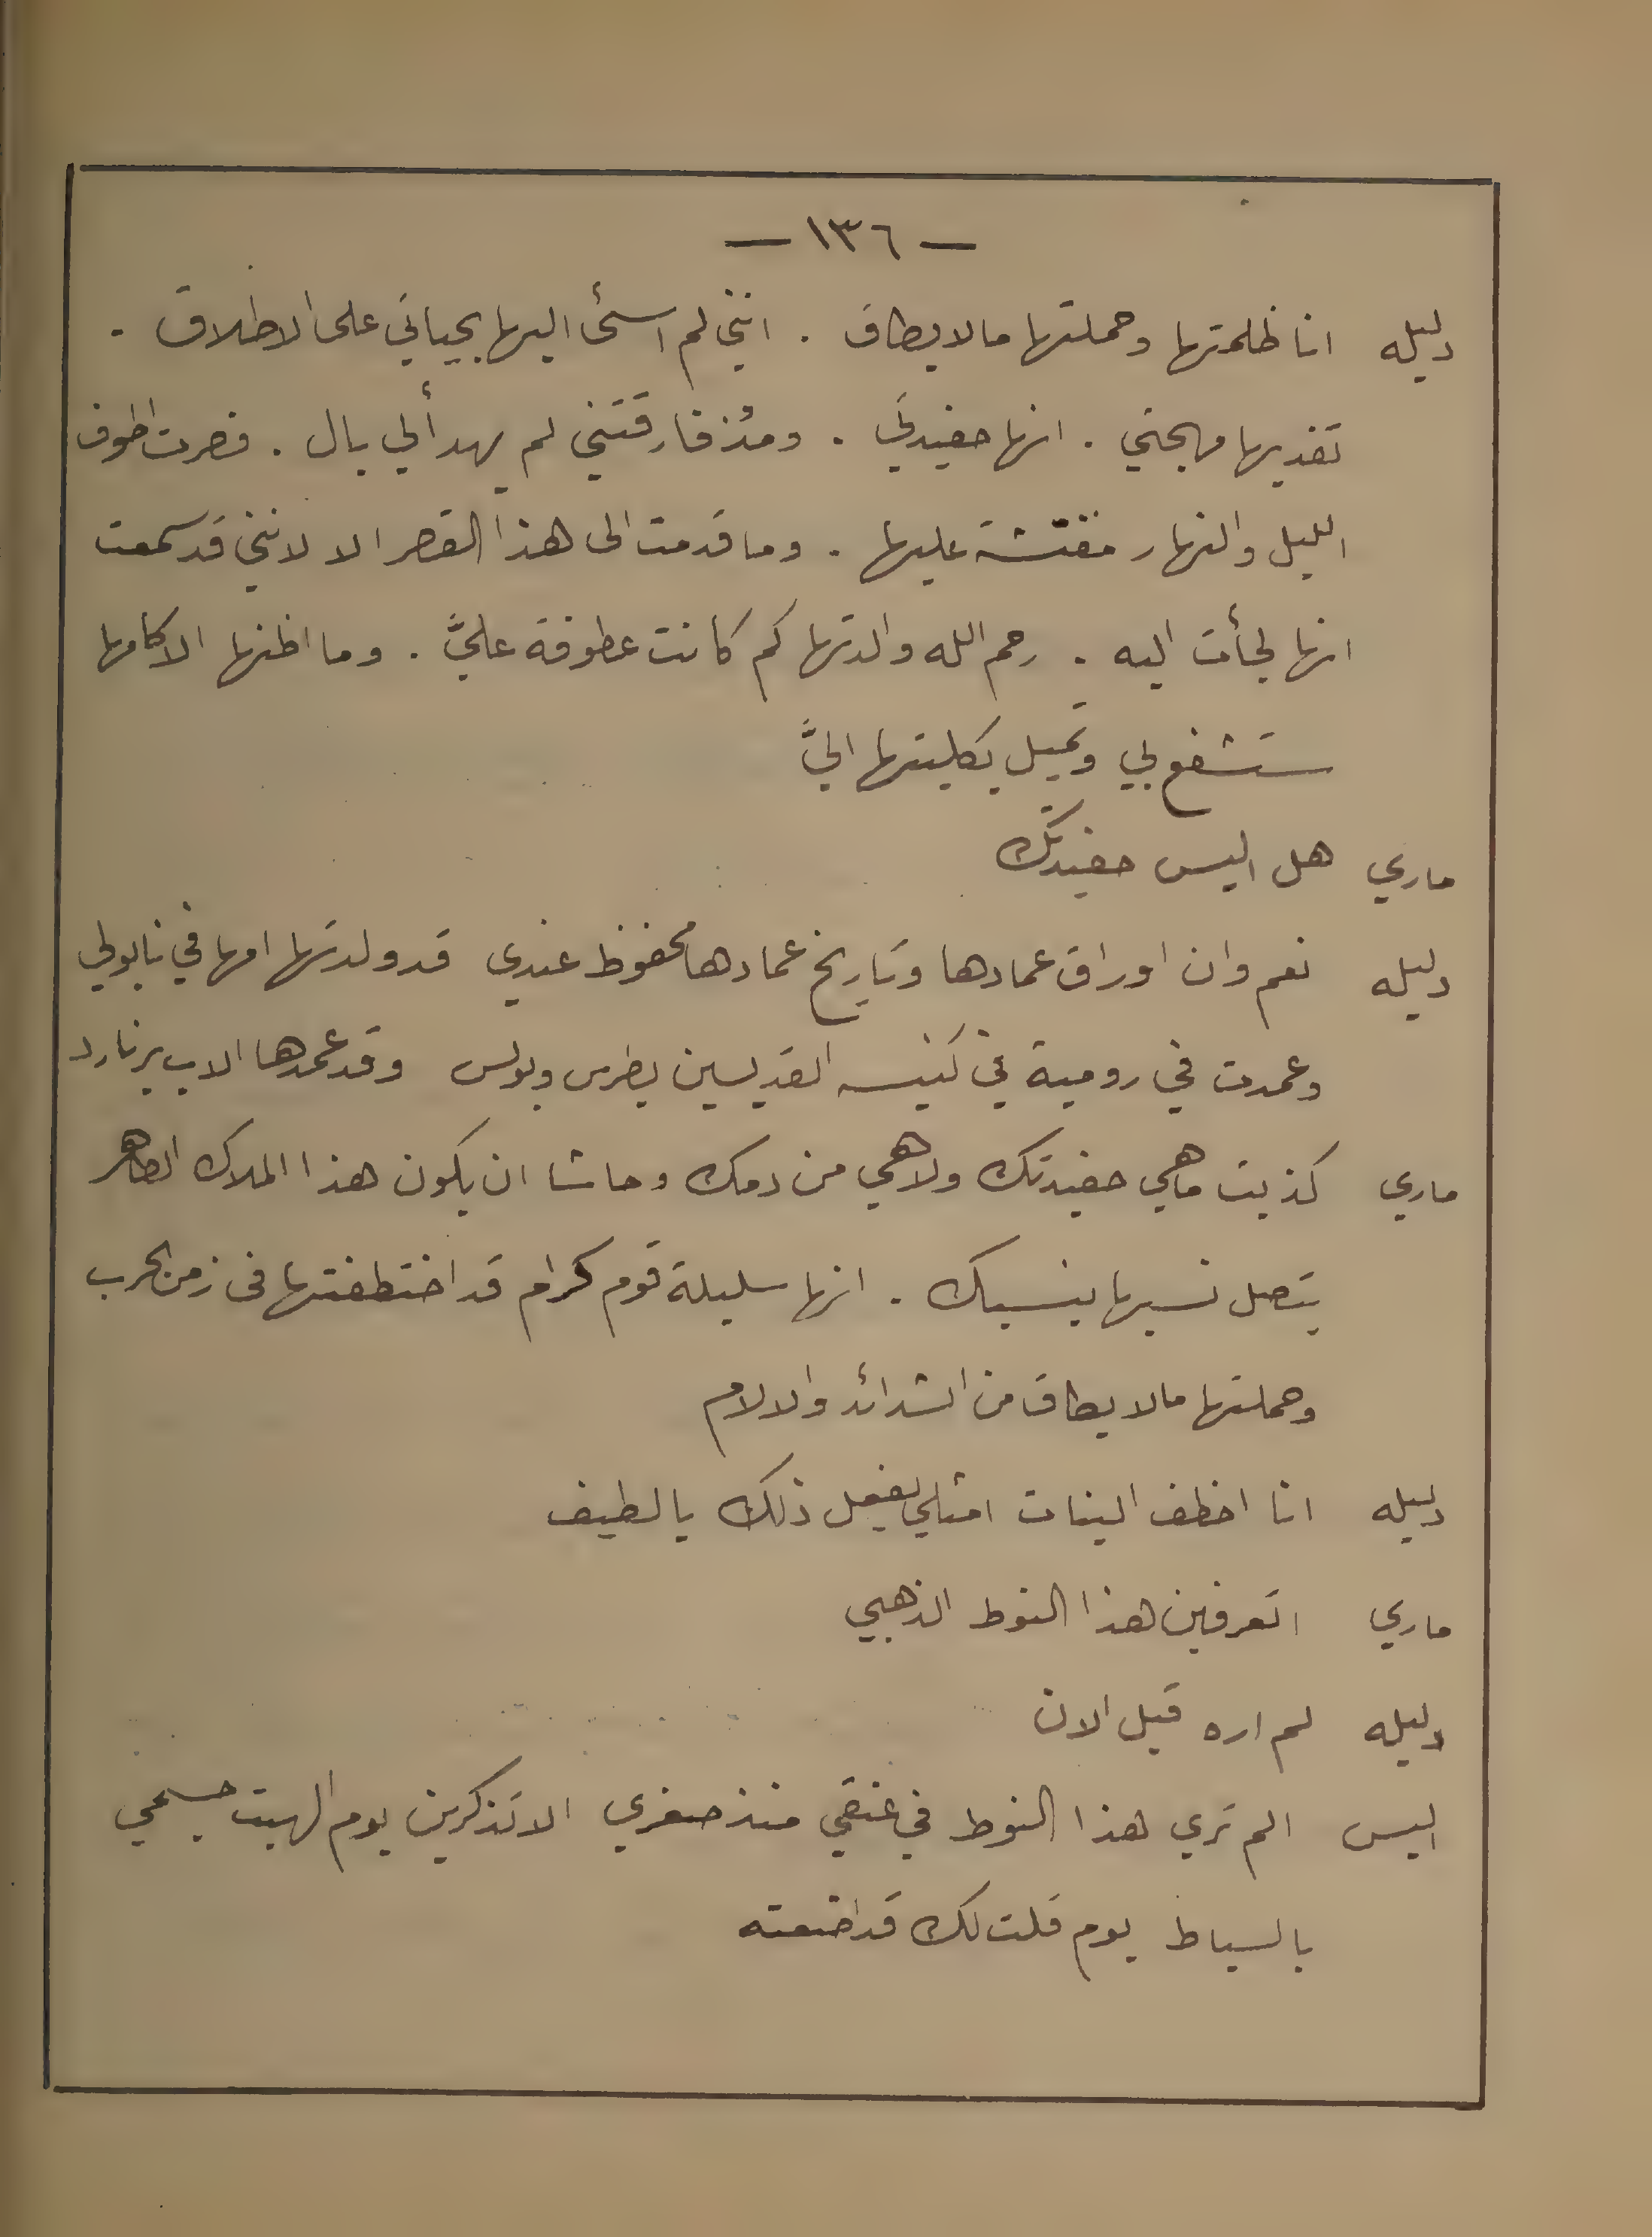 — ١٣٦ —
دليله انا ظلمتها وحملتها مالايطاق . انني لم اسئ اليها بحياتي على الاطلاق .
تفديها مهجتي . انها حفيدتي . ومُذ فارقتني لم يهدألي بال . فصرت اطوف
الليل والنهار مفتشة عليها . وما قدمت الى هذا القصر الا لانني قد سمعت
انها لجأت اليه . رحم الله والدتها كم كانت عطوفة عليَّ . وما اظنها الا كامها
ستشفع لي وتميل بكليتها اليَّ
ماري هل اليس حفيدتك
دليله نعم وان اوراق عمادها وتاريخ عمادها محفوظ عندي قد ولدتها امها في نابولي
وعمدت في رومية في كنيسه القديسين بطرس وبولس وقد عمدها الاب برنارد
ماري كذبت ماهي حفيدتك ولاهي من دمك وحاشا ان يكون هذا الملاك الطاهر
يتصل نسبها بنسبك . انها سليلة قوم كرام قد اختطفتها فى زمن الحرب
وحملتها مالا يطاق من الشدائد والالام
دليله انا اخطف البنات امثلي يفعل ذلك يا لطيف
ماري اتعرفين هذا النوط الذهبي
دليله لم اره قبل الان
اليس الم تري هذا النوط في عنقي منذ صغري الا تذكرين يوم الهبت جسمي
بالسياط يوم قلت لك قد اضعته